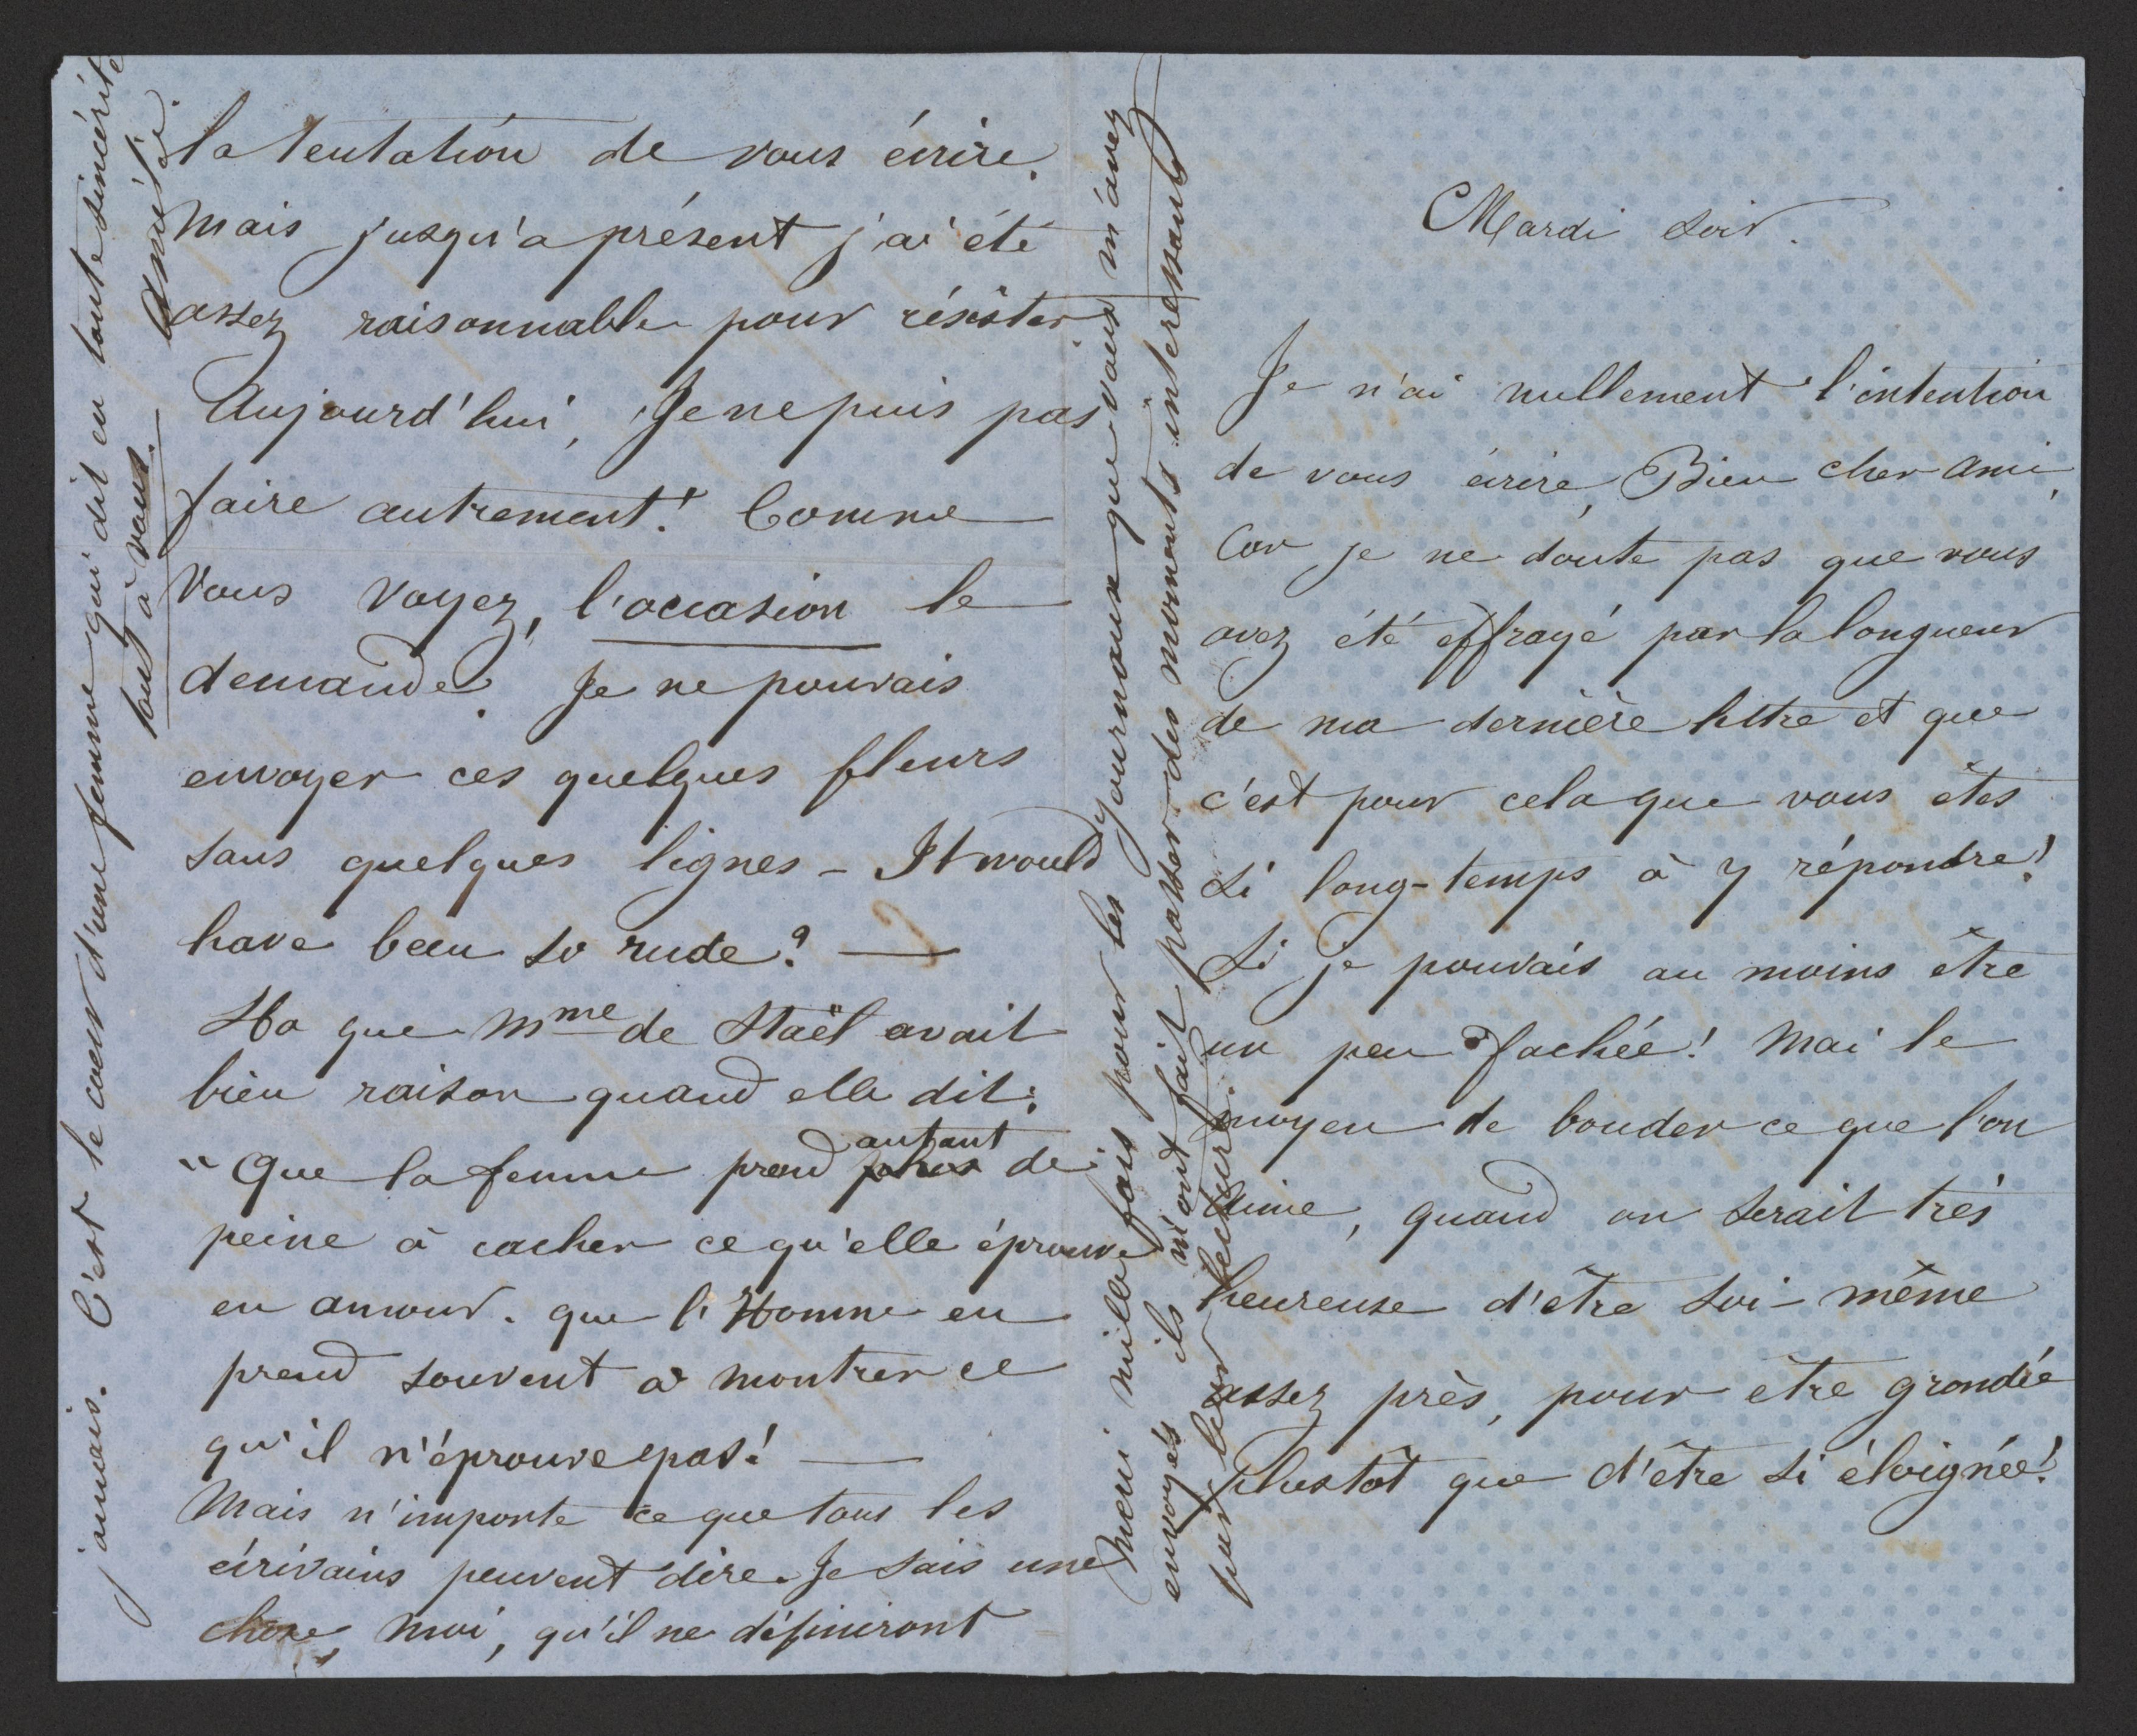 Mardi soir.
Je n'ai nullement l'intention
de vous écrire, Bien cher ami,
Car je ne doute pas que vous
avez été effrayé par la longueur
de ma dernière lettre et que
c'est pour cela que vous êtes
si long-temps à y répondre!
Si je pouvais au moins être
un peu fachée! Mai le
moyen de bouder ce que l'on
aime, quand on serait très
heureuse d'être soi-même
assez près, pour être grondée
plustôt que d'être si éloignée!
la tentation de vous écrire.
Mais jusqu'a présent j'ai été
assez raisonnable pour résister
Aujourd'hui, Je ne puis pas
faire autrement! Comme
vous voyez, l'occasion le
demande. Je ne pouvais
envoyer ces quelques fleurs
sans quelques lignes - It would
have been so rude? —
Ho que Mme de Staël avait
bien raison quand elle dit:
"Que la femme prend autant de
peine à cacher ce qu'elle éprouve
en amour. que l'Homme en
prend souvent a montrer ce
qu'il n'éprouve pas! —
Mais n'importe ce que tous les
écrivains peuvent dire. Je sais une
chose, moi, qu'il ne définiront
jamais. C'est le coeur d'une femme qui dit en toute sincérité
tout à vous. — Amitié
Merci mille fois pour les journaux que vous m'avez
envoyés ils m'ont fait passer des moments interessants
par leur lecture.